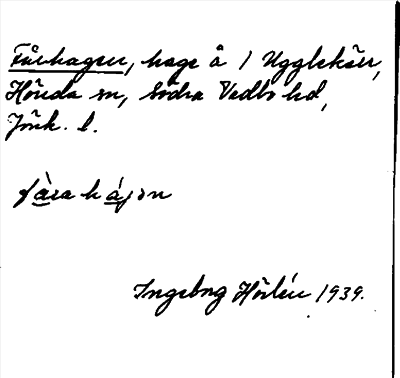 Fårhagen, hage å 1 Ugglekärr,
Hönda sn, Södra Vedbo hd,
Jönk. l.
fàra hájən
Ingeborg Hörlén 1939.